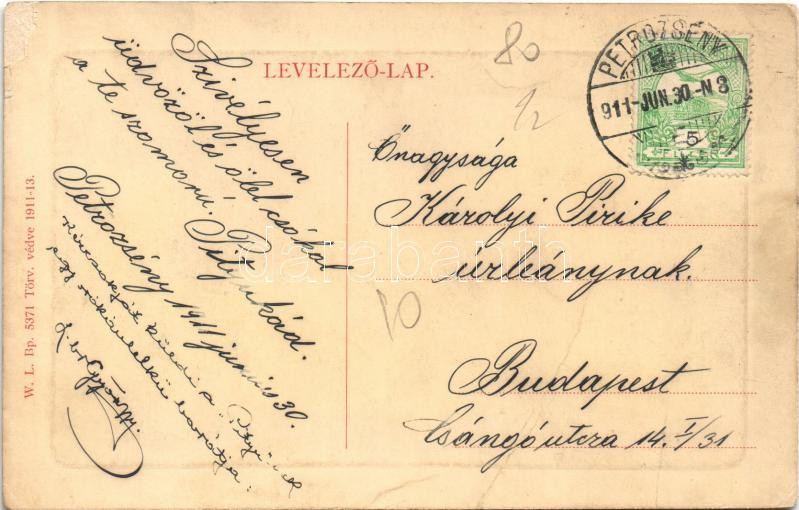 LEVELEZŐ-LAP.
80
PETROZSÉNY
911-JUN.30.-N8
5
1/2
Szivélyesen
üdvözöl és ölel csókol
a te szomorú. Pityukád.
Petrozsény 1911 junius 30.
küldi a
lelkü barátja:
Őnagysága
Károlyi Pirike
úrleánynak.
Budapest
Csángó utcza 14. I/31
10
W. L. Bp. 5371 Törv. védve 1911-13.
darabanth